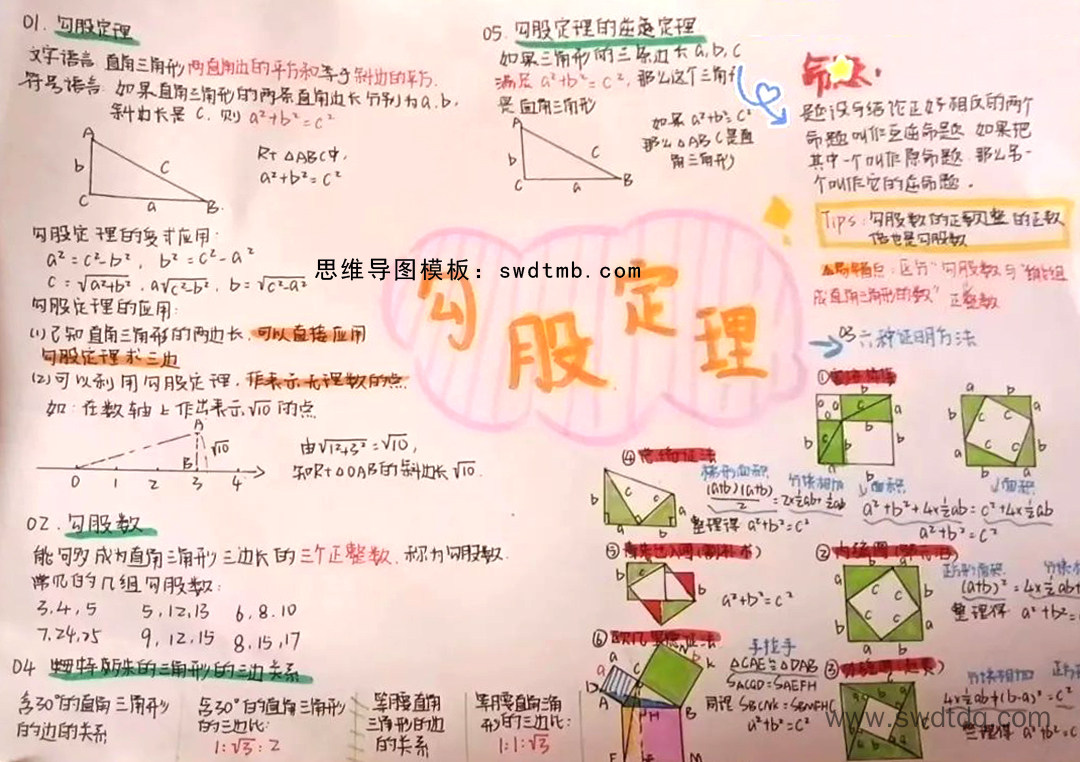 01. 勾股定理
文字语言:直角三角形两直角边的平方和等于斜边的平方.
符号语言:如果直角三角形的两条直角边长分别为a,b,
斜边长是c,则a²+b²=c²
A
b
c
C
a
B
Rt△ABC中,
a²+b²=c²
勾股定理的变式应用:
a²=c²-b², b²=c²-a²
c=√a²+b², a√c²-b², b=√c²-a²
勾股定理的应用:
(1)已知直角三角形的两边长,可以直接应用
勾股定理求三边
(2)可以利用勾股定理,作表示无理数的点.
如:在数轴上作出表示√10的点
A
√10
B
0 1 2 3 4
由√1²+3²=√10,
知Rt△OAB的斜边长√10.
02. 勾股数
能够成为直角三角形三边长的三个正整数,称为勾股数.
常见的几组勾股数:
3,4,5 5,12,13 6,8,10
7,24,25 9,12,15 8,15,17
04 特殊的三角形的三边关系
含30°的直角三角形
的边的关系
含30°的直角三角形
的三边比:
1:√3:2
等腰直角
三角形的边
的关系
等腰直角三角
形的三边比:
1:1:√3
05. 勾股定理的逆定理
如果三角形的三条边长a,b,c
满足a²+b²=c²,那么这个三角
是直角三形
A
b
c
C
a
B
如果a²+b²=c²
那么△ABC是直
角三角形
思维导图模板:swdtmb.com
勾股定理
命题.
题设与结论正好相反的两个
命题叫作互逆命题.如果把
其中一个叫作原命题.那么另一
个叫作它的逆命题.
Tips:勾股数的正整的正数
倍也是勾股数
区分"勾股数与"
成直角三角形的数" 正整数
03 六种证明方法
①
a b
c
b a
面积 面积
a²+b²+4×½ab=c²+4×½ab
a²+b²=c²
④
梯形面积 分块相加
(a+b)(a+b)/2=2×½ab+½ab
整理得 a²+b²=c²
⑤
a²+b²=c²
②
正方形面积
(a+b)²=4×½ab+
整理得 a²+b²=
⑥
手拉手
△CAE≌△DAB
SACQD=SAEFH
同理 SBCNK=SBMFHC
a²+b²=c²
③
分块相加
4×½ab+(b-a)²=c²
整理得 a²+b²=c
www.swdtdq.com